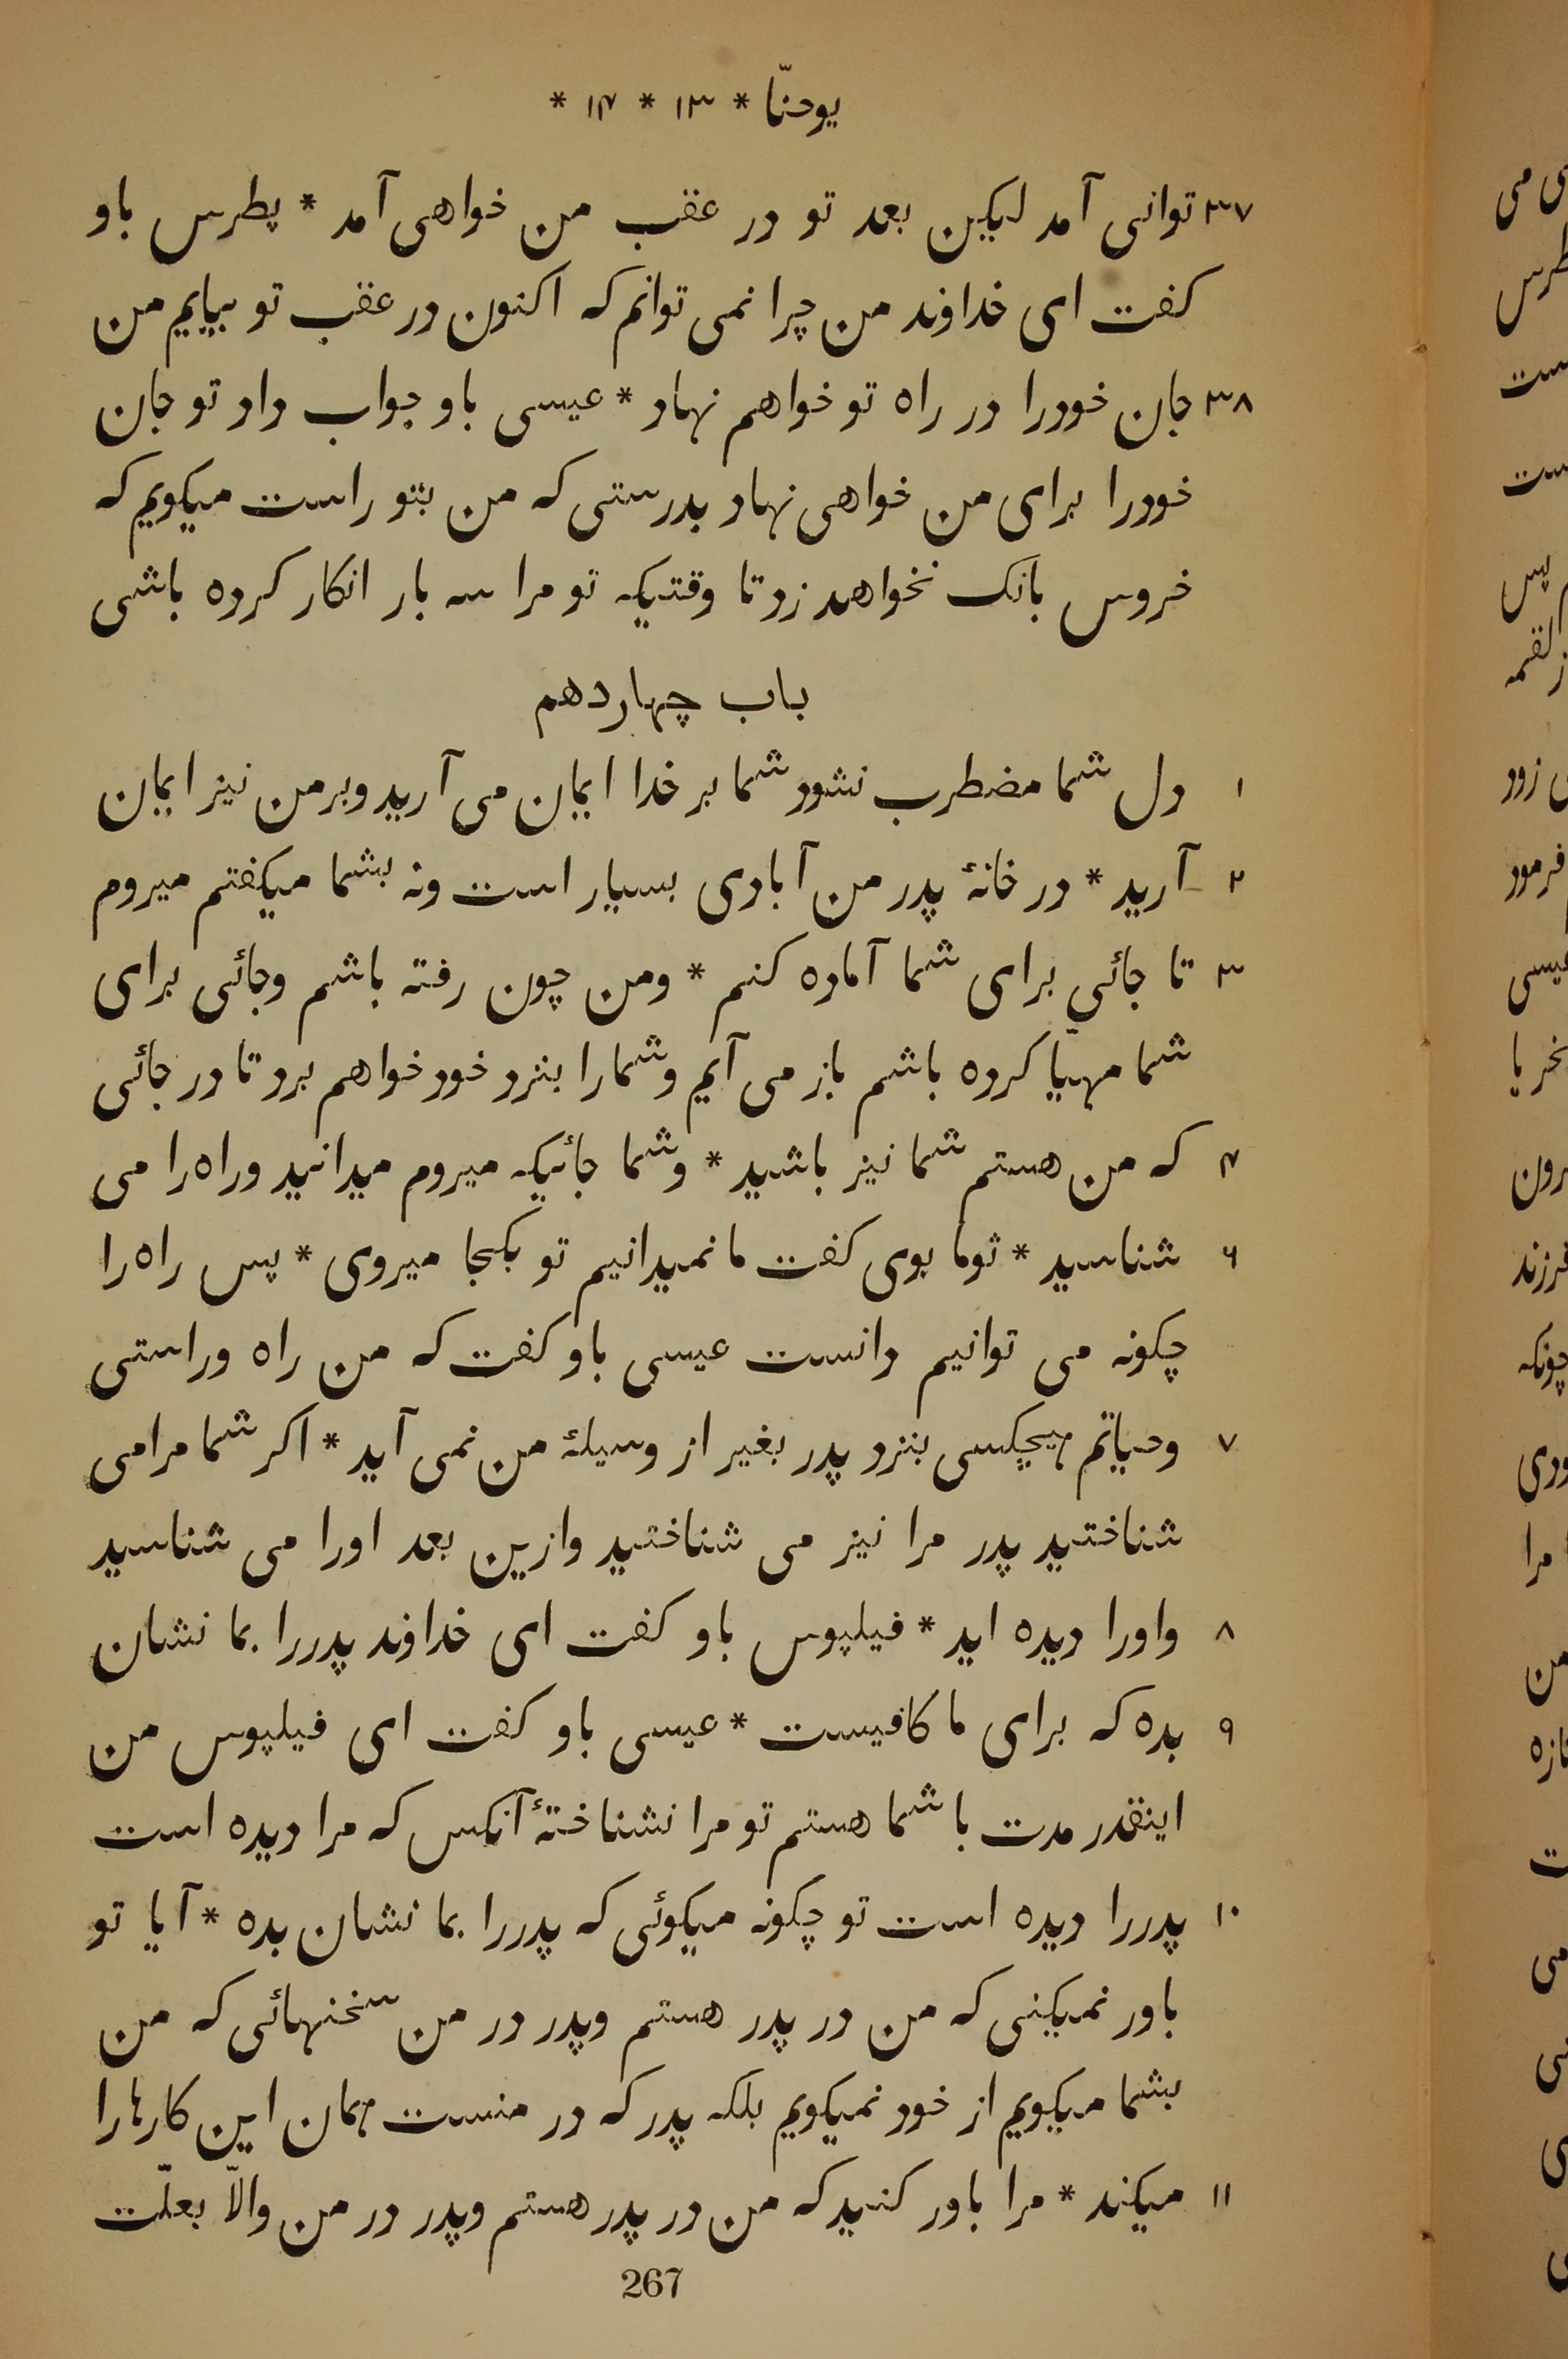 یوحنّا * ۱۳ * ۱۴ *
۳۷ توانی آمد لیکین بعد تو در عقب من خواهی آمد * پطرس باو
کفت ای خداوند من چرا نمی توانم که اکنون در عقب تو بیایم من
۳۸ جان خودرا در راه تو خواهم نهاد * عیسی باو جواب داد تو جان
خودرا برای من خواهی نهاد بدرستی که من بتو راست میکویم که
خروس بانک نخواهد زد تا وقتیکه تو مرا سه بار انکار کرده باشی
باب چهاردهم
۱ دل شما مضطرب نشود شما بر خدا ایمان می آرید وبرمن نیز ایمان
۲ آرید * در خانهٔ پدر من آبادی بسیار است ونه بشما میکفتم میروم
۳ تا جائی برای شما آماده کنم * ومن چون رفته باشم وجائی برای
شما مهیّا کرده باشم باز می آیم وشمارا بنزد خود خواهم برد تا در جائی
۴ که من هستم شما نیز باشید * وشما جائیکه میروم میدانید وراه را می
۶ شناسید * ثوما بوی کفت ما نمیدانیم تو بکجا میروی * پس راه را
چکونه می توانیم دانست عیسی باو کفت که من راه وراستی
۷ وحیاتم هیچکسی بنزد پدر بغیر از وسیلهٔ من نمی آید * اکر شما مرا می
شناختید پدر مرا نیز می شناختید وازین بعد اورا می شناسید
۸ واورا دیده اید * فیلپوس باو کفت ای خداوند پدررا بما نشان
۹ بده که برای ما کافیست * عیسی باو کفت ای فیلپوس من
اینقدر مدت با شما هستم تو مرا نشناختهٔ آنکس که مرا دیده است
۱۰ پدررا دیده است تو چکونه میکوئی که پدررا بما نشان بده * آیا تو
باور نمیکنی که من در پدر هستم وپدر در من سخنهائی که من
بشما میکویم از خود نمیکویم بلکه پدر که در منست همان این کارهارا
۱۱ میکند * مرا باور کنید که من در پدر هستم وپدر در من والّا بعلّت
267